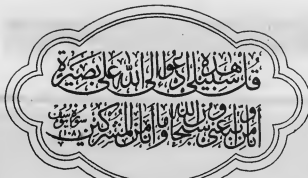 قُلْ هَٰذِهِ سَبِيلِي أَدْعُو إِلَى اللَّهِ عَلَىٰ بَصِيرَةٍ
أَنَا وَمَنِ اتَّبَعَنِي وَسُبْحَانَ اللَّهِ وَمَا أَنَا مِنَ الْمُشْرِكِينَ سورة يوسف ١٠٨